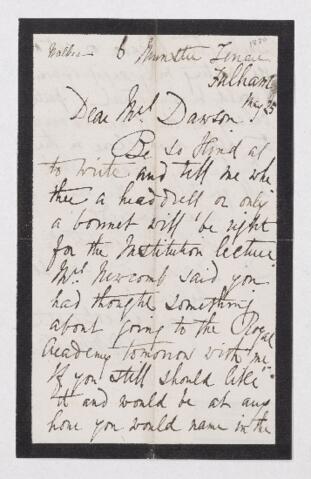 6 Munster Terrace
1850
Fulham
May 25
Dear Mrs Dawson.
Be so kind as
to write and tell me whe
ther a headdress or only
a bonnet will be right
for the Institution lecture
Mrs Newcomb said you
had thought something
about going to the Royal
Academy tomorrow with me.
If you still should like
it and would be at any
hour you would name in the